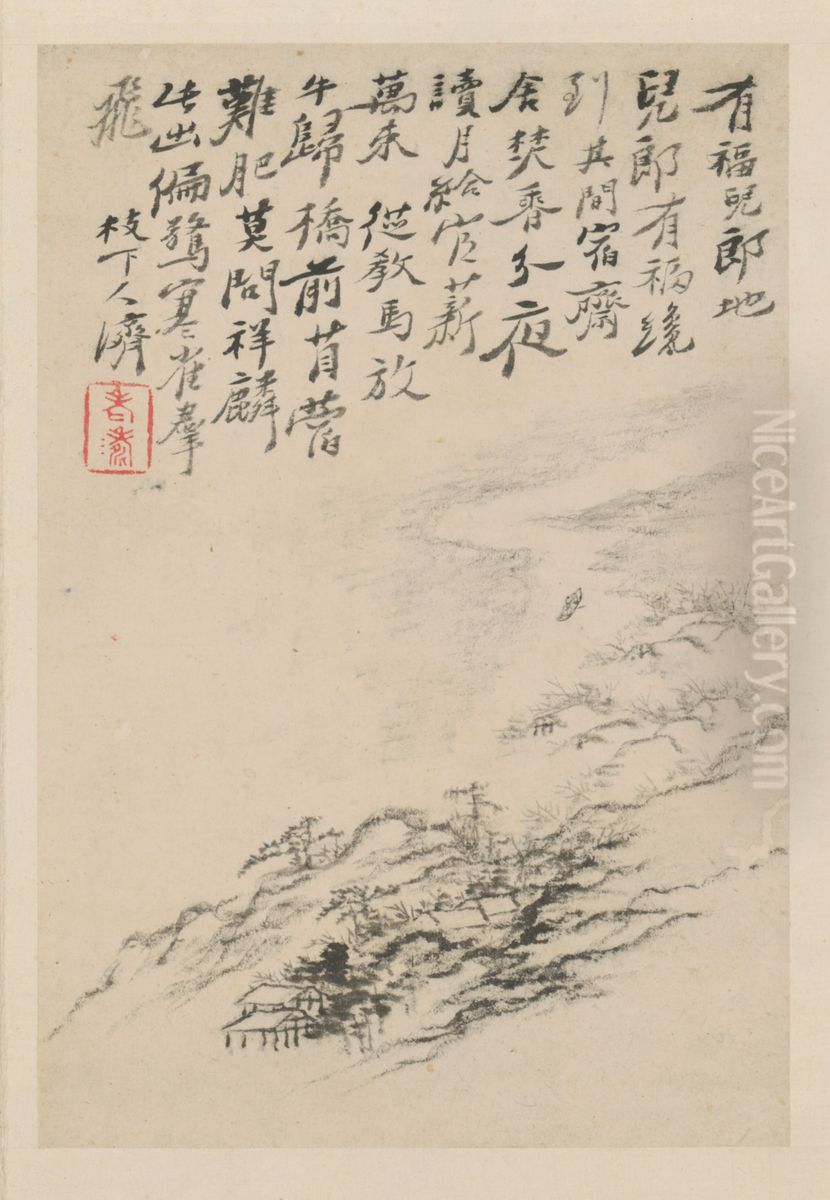 有福兒郎地
兒郎有福緣
到其間宿齋
舍焚香分夜
讀月給官薪
萬未從教馬放
牛歸橋前苜蓿
難肥莫問祥麟
生出偏驚寒雀群
飛
枝下人濟
NiceArtGallery.com